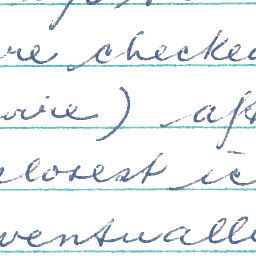 re checked
wire) af
closest ic
ventuall